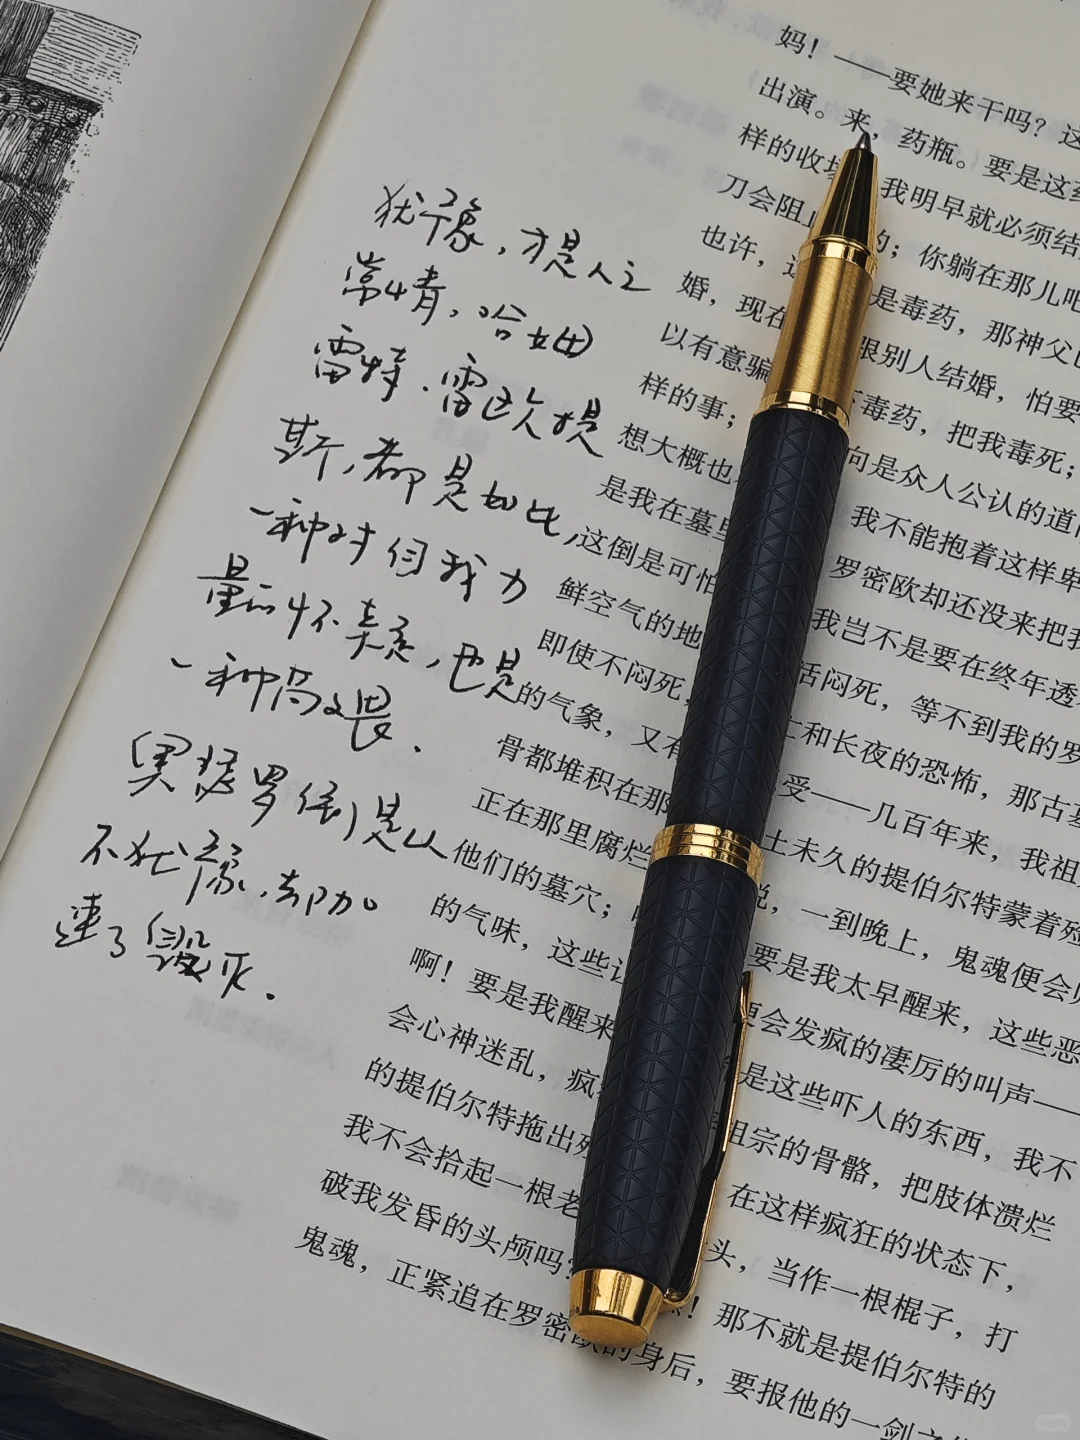 犹豫，才是人之
常情，哈姆
雷特、雷欧提
斯，都是如此，
一种对自我力
量的怀疑，也是
一种畏.
奥瑟罗倒是从
不犹豫，却加
速了毁灭。
妈！——要她来干吗？这
出演。来，药瓶。要是这
样的收场 我明早就必须结
刀会阻止 的；你躺在那儿吧
也许，这 是毒药，那神父
婚，现在 跟别人结婚，怕要
以有意骗 毒药，把我毒死；
样的事； 向是众人公认的道
想大概也 我不能抱着这样卑
是我在墓里 罗密欧却还没来把我
这倒是可怕 我岂不是要在终年透
鲜空气的地 活闷死，等不到我的罗
即使不闷死， 和长夜的恐怖，那古墓
的气象，又有 受——几百年来，我祖
骨都堆积在那 土未久的提伯尔特蒙着殓
正在那里腐烂 说，一到晚上，鬼魂便会
他们的墓穴； 要是我太早醒来，这些恶
的气味，这些 便会发疯的凄厉的叫声——
啊！要是我醒来 是这些吓人的东西，我不
会心神迷乱，疯 祖宗的骨骼，把肢体溃烂
的提伯尔特拖出 在这样疯狂的状态下，
我不会拾起一根老 头，当作一根棍子，打
破我发昏的头颅吗？ ！那不就是提伯尔特的
鬼魂，正紧追在罗密欧的身后，要报他的一剑之